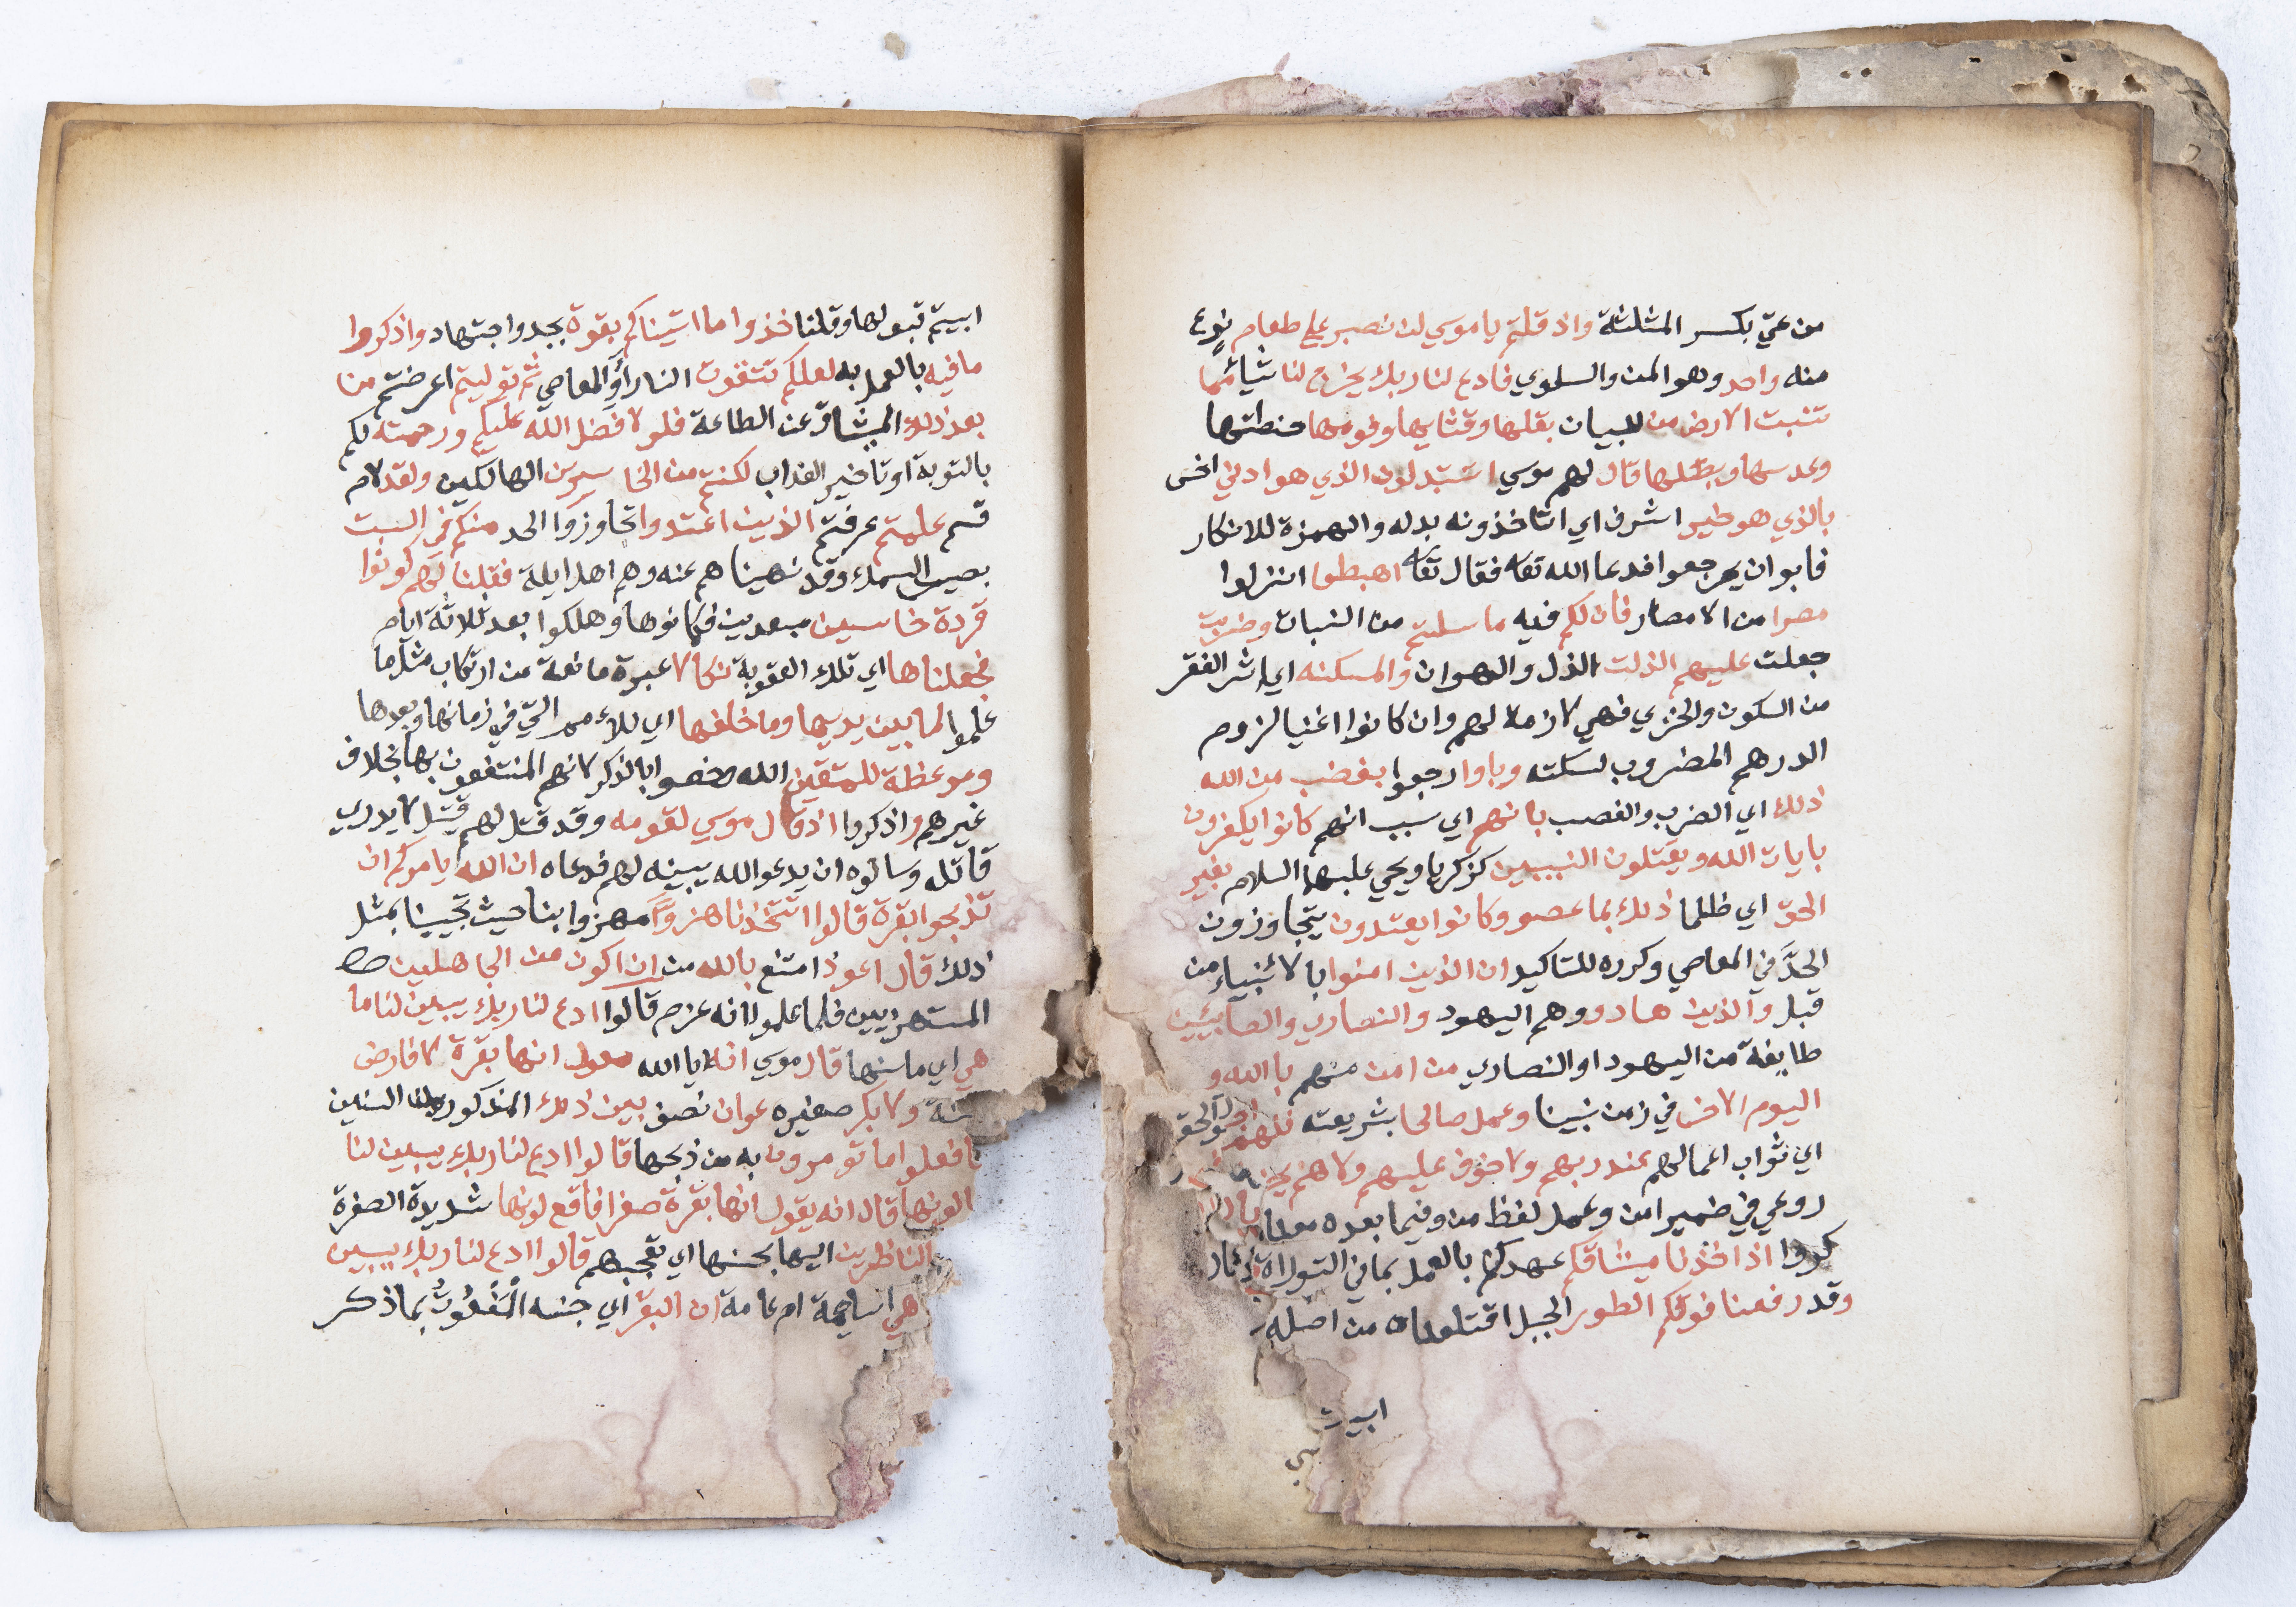 من عثي بكسر المثلثة واذ قلتم يا موسي لن نصبر علي طعام نوع
منه واحد وهو المن والسلوي فادع لنا ربك يخرج لنا شيأ مما
تنبت الارض من للبيان بقلها وقثايها وفومها حنطتها
وعدسها وبصلها قال لهم موسي اتستبدلون الذي هو ادني اخس
بالذي هو خير اشرف اي اتاخذونه بدله والهمزة للانكار
فابوا ان يرجعوا فدعا الله تعه فقال تعه اهبطوا انزلوا
مصرا من الامصار فان لكم فيه ما سلتم من النبات وضربت
جعلت عليهم الذلت الذل والهوان والمسكنه اي اثر الفقر
من السكون والخزي فهي لازمة لهم وان كانوا اغنيا لزوم
الدرهم المضروب لسكته وباوا رجعوا بغضب من الله
ذلك اي الضرب والغضب بانهم اي سبب انهم كانوا يكفرون
بايات الله ويقتلون النبيين كزكريا ويحيي عليهما السلام بغير
الحق اي ظلما ذلك بما عصو وكانوا يعتدون يتجاوزون
الحدَّ في المعاصي وكرره للتاكيد ان الذين امنوا بالانبياء من
قبل والذين هادو وهم اليهود والنصاري والصابيين
طايفة من اليهود او النصاري من امن منهم بالله و
اليوم الاخر في زمن نبينا وعمل صالحا بشريعته فلهم اجر
اي ثواب اعمالهم عند ربهم ولا خوف عليهم ولا هم
روعي في ضمير امن وعمل لفظ من وفيما بعده
كروا اذ اخذنا ميثاقكم عهدكم بالعمل بما في التوراة
وقد رفعنا فوقكم الطور الجبل اقتلعناه من اصله
ابيت
ابيتم قبولها وقلنا خذوا ما اتيناكم بقوة بجد واجتهاد واذكروا
ما فيه بالعمل به لعلكم تتقون النار أو المعاصي ثم توليتم اعرضتم من
بعد ذلك الميثاق عن الطاعة فلولا فضل الله عليكم ورحمته لكم
بالتوبة او تاخير العذاب لكنتم من الخاسرين الهالكين ولقد لام
قسم علمتم عرفتم الذين اعتدوا تجاوزوا الحد منكم في السبت
بصيد السمك وقد نهيناهم عنه وهم اهل ايلة فقلنا لهم كونوا
قردة خاسين مبعدين فكانوها وهلكوا بعد ثلاثة ايام
فجعلناها اي تلك العقوبة نكالا عبرة مانعة من ارتكاب مثل ما
علموا لما بين يديها وما خلفها اي للامم التي في زمانها وبعدها
وموعظة للمتقين الله خصوا بالذكر لانهم المنتفعون بها بخلاف
غيرهم واذكروا اذ قال موسي لقومه وقد قتل لهم قتيل لا يدري
قاتله وسالوه ان يدعو الله يبينه لهم فدعاه ان الله يامركم ان
تذبحوا بقرة قالوا اتتخذنا هزوًا مهزوا بنا حيث تجيبنا بمثل
ذلك قال اعوذ امتنع بالله من ان اكون من الجاهلين
المستهزيين فلما علموا انه عزم قالوا ادع لنا ربك يبين لنا ما
هي اي ما سنها قال موسي انه ايا الله يقول انها بقرة لا فارض
سنة ولا بكر صغيره عوان نصف بين ذلك المذكور من السنين
فافعلوا ما تومرون به من ذبحها قالوا ادع لنا ربك يبين لنا
لونها قال انه يقول انها بقرة صفرا فاقع لونها شديدة الصفرة
الناظرين اليها بحسنها اي تعجبهم قالوا ادع لنا ربك يبين
هي اسايمة ام عاملة ان البقر اي جنسه المنعوت بما ذكر